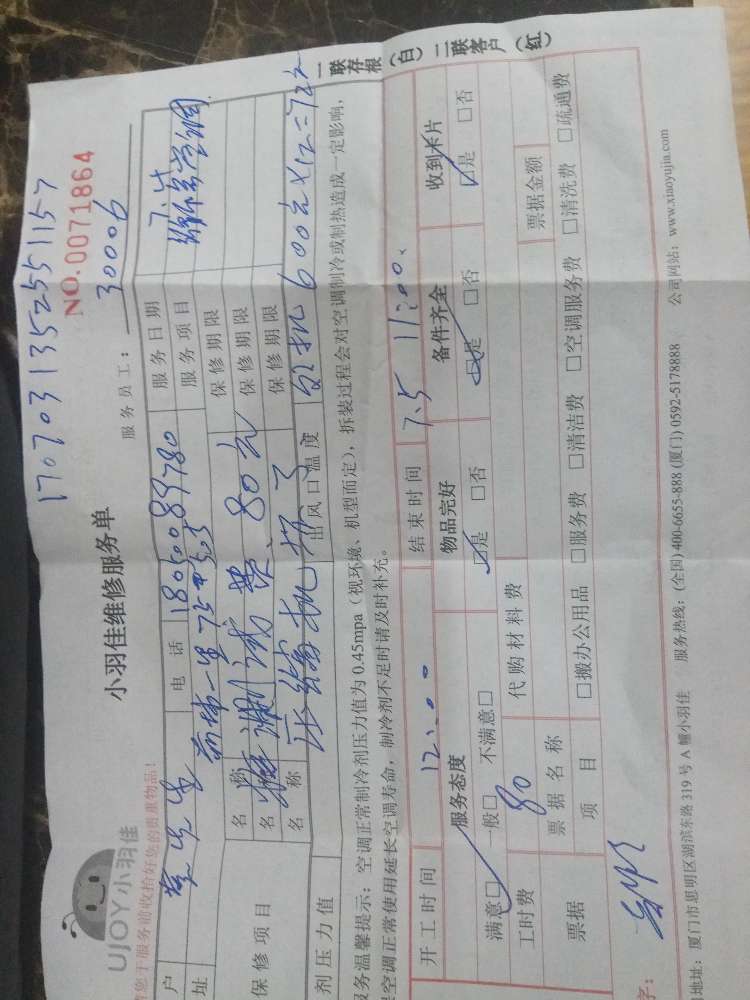 17070313525551157
NO.0071864
UJOY小羽佳
小羽佳维修服务单
服务员工: 30006
请您于服务前收拾好您的贵重物品!
户 先生 电话 18050089780 服务日期 7.5
址 服务项目 维修空调
保修项目 名称 保修期限
名称 检测费 80元 保修期限
名称 压缩机坏了 保修期限
剂压力值 出风口温度 包机600元×12=722
服务温馨提示:空调正常制冷剂压力值为0.45mpa(视环境、机型而定),拆装过程会对空调制冷或制热造成一定影响,
保空调正常使用延长空调寿命,制冷剂不足时请及时补充。
开工时间 12:00 结束时间 7.5 11:00.
服务态度 物品完好 备件齐全 收到术片
满意□ 一般□ 不满意□ □是 □否 □是 □否 □是 □否
工时费 80 代购材料费
票据 票据名称 票据金额
项目 □搬办公用品 □服务费 □清洁费 □空调服务费 □清洗费 □疏通费
字:
地址:厦门市思明区湖滨东路319号A幢小羽佳 服务热线:(全国)400-6655-888 (厦门) 0592-5178888 公司网站:www.xiaoyujia.com
一联存根(白) 二联客户(红)